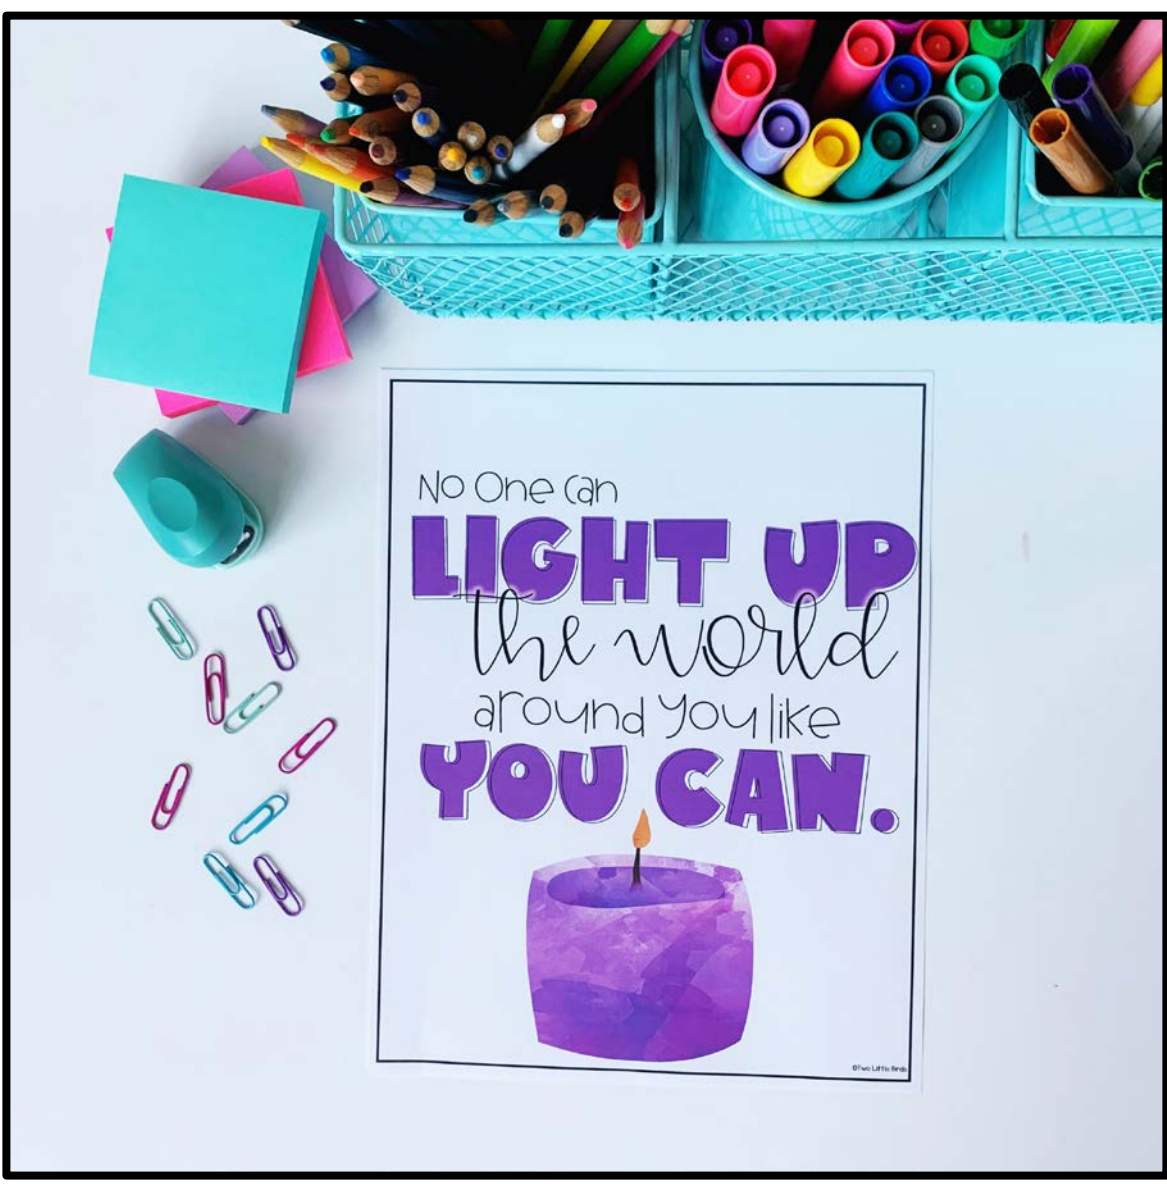 No One Can
LIGHT UP
the world
around you like
YOU CAN.
©Two Little Birds